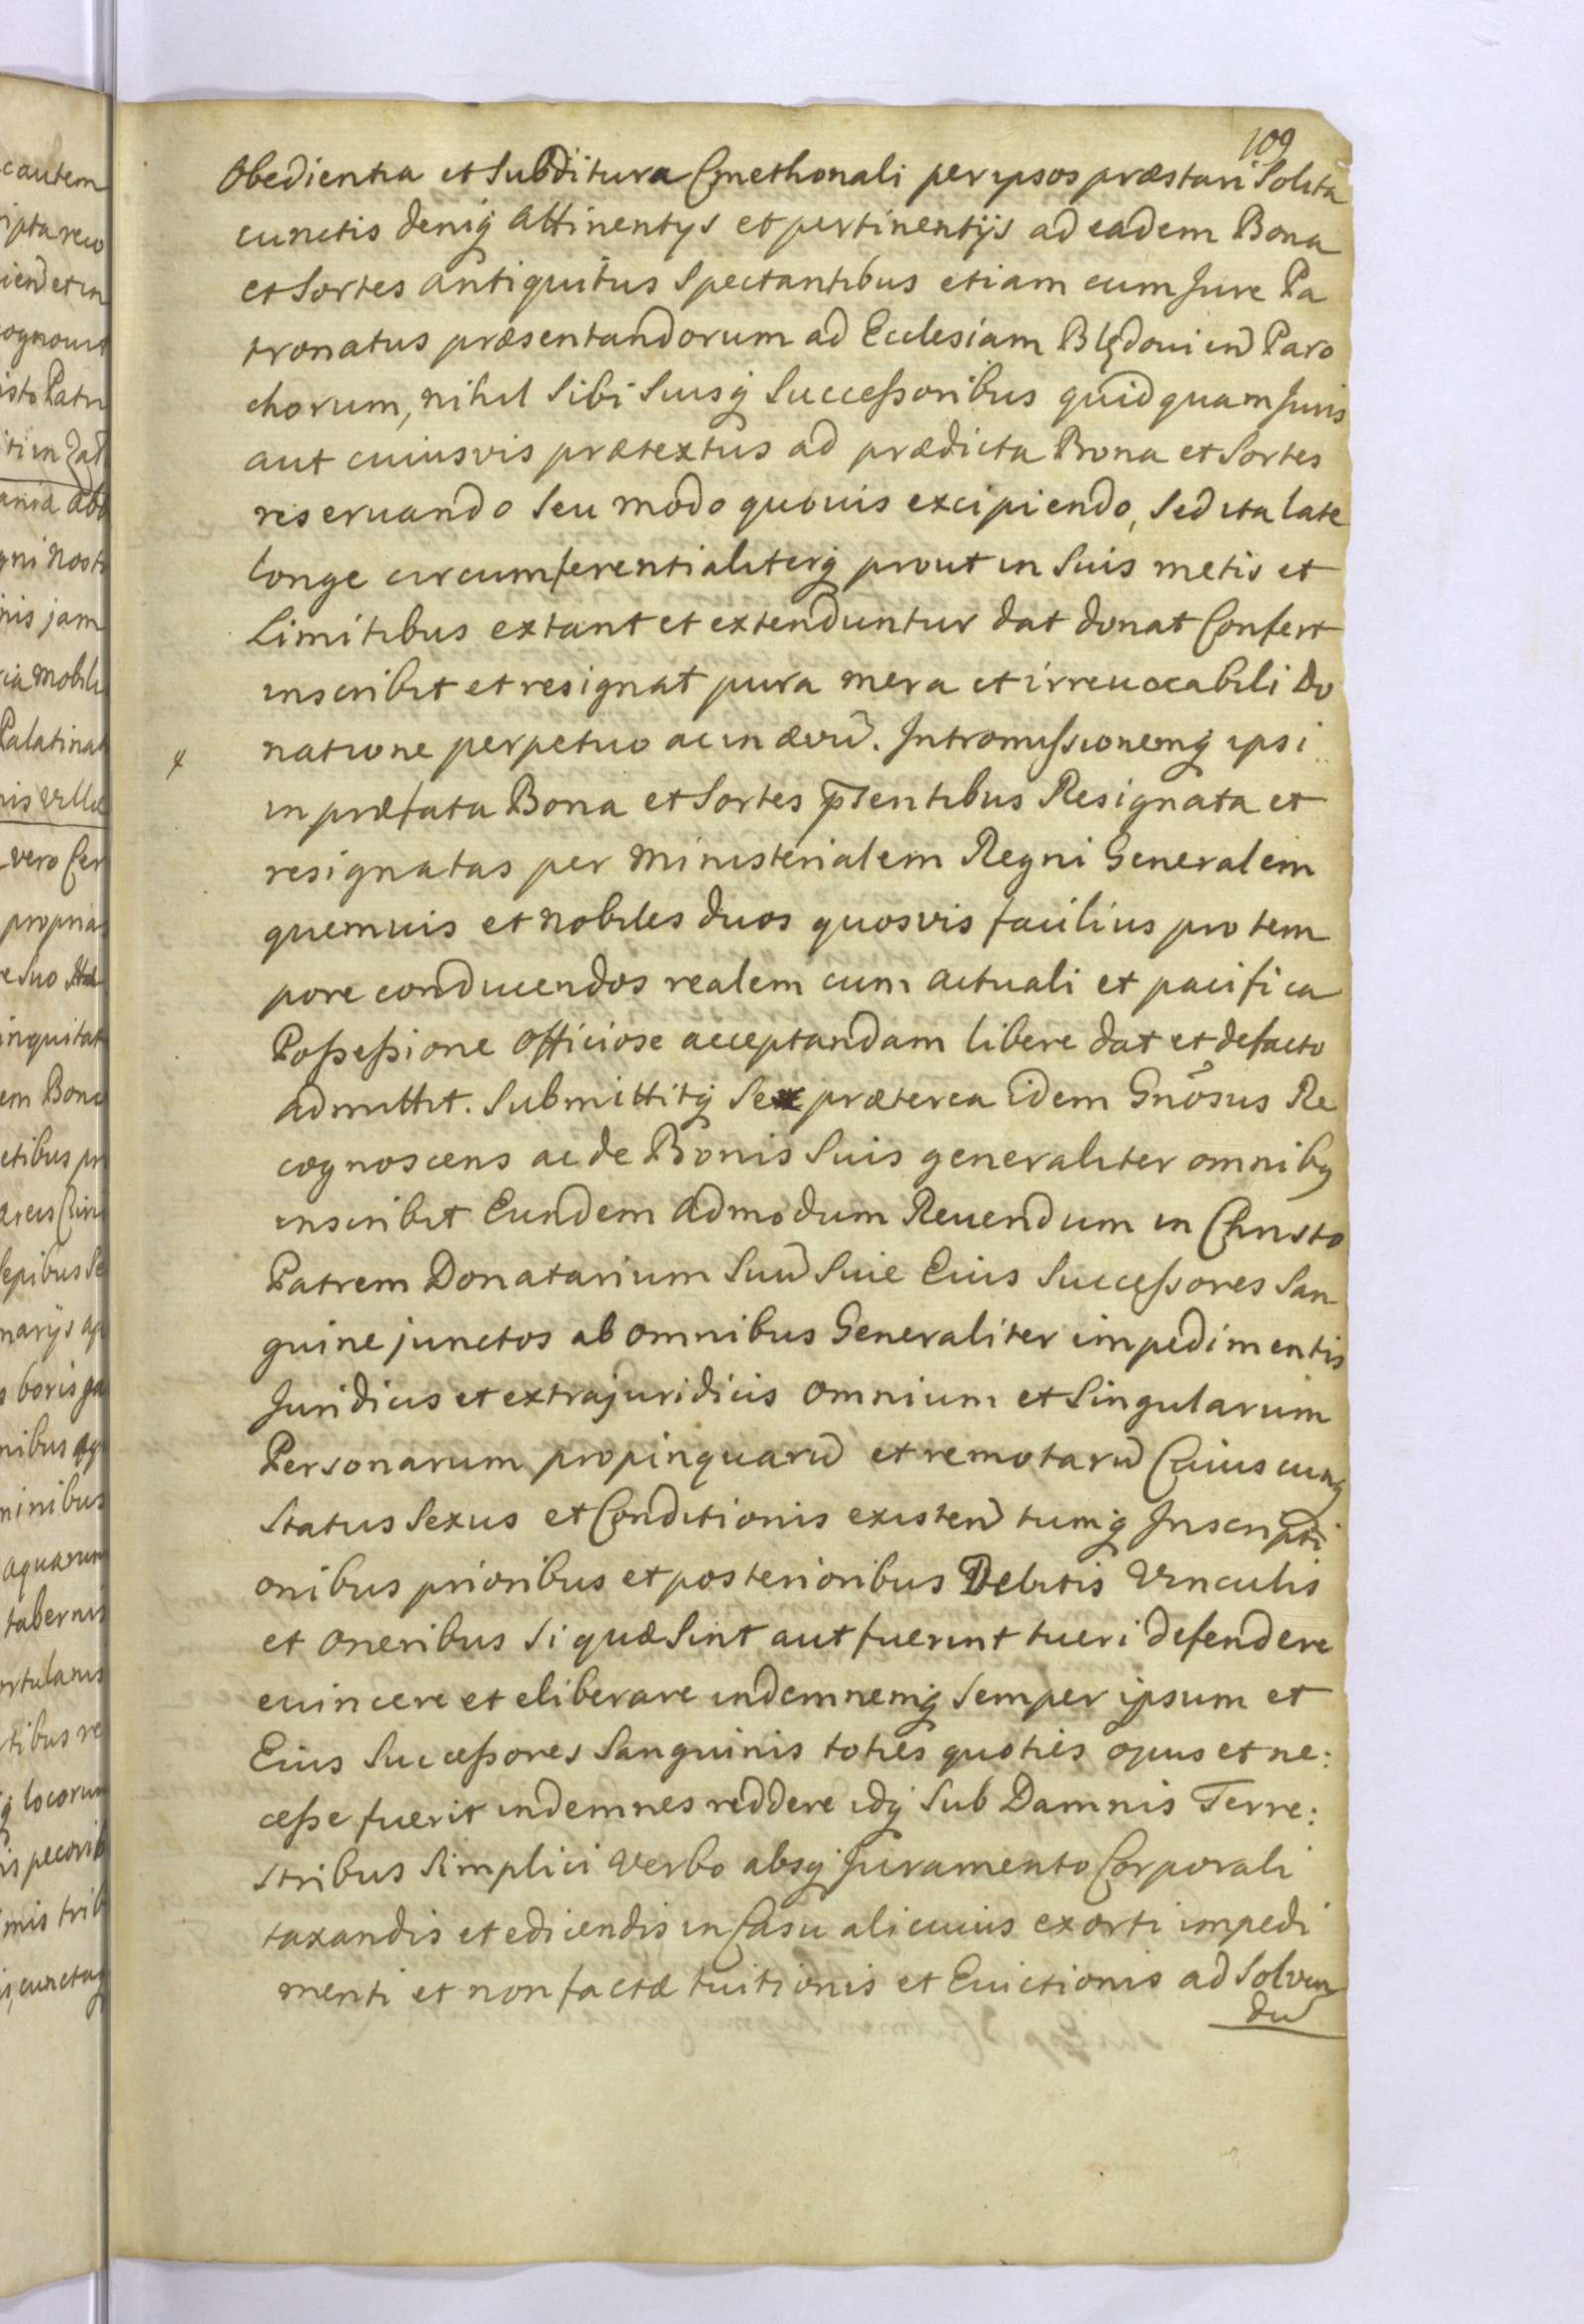 109
Obedientia et Subditura Cmethonali per ipsos præstari Solita
cunctis deniq attinentys et pertinentijs ad eadem Bona
et Sortes antiquitus Spectantibus etiam cum Jure Pa
tronatus præsentandorum ad Ecclesiam Blędovien Paro
chorum, nihil Sibi Suisq Successoribus quidquam Juris
aut cuiusvis prætextus ad prædicta Bona et Sortes
reseruando Seu modo quouis excipiendo, Sed ita late
longe circumferentialiterq prout in Suis metis et
Limitibus extant et extenduntur dat donat Confert
inscribit et resignat pura mera et irreuocabili Do
natione perpetuo ac in ævu. Intromissionemq ipsi
in præfata Bona et Sortes pntibus Resignata et
resignatas per Ministerialem Regni Generalem
quemuis et nobiles duos quosvis facilius pro tem
pore conducendos realem cum actuali et pacifica
Possessione officiose acceptandam libere dat et defacto
admittit. Submittitq Se præterea idem Gnosus Re
cognoscens ac de Bonis Suis generaliter omnibq
inscribit Eundem Admodum Reuendum in Christo
Patrem Donatarium Suu Siue Eius Successores San
guine junctos ab omnibus Generaliter impedimentis
Juridicis et extrajuridicis omnium et Singularum
Personarum propinquaru et remotaru Cuiuscunq
Status Sexus et Conditionis existen tumq Inscripti
onibus prioribus et posterioribus Debitis Vinculis
et oneribus Si quæ Sint aut fuerint tueri defendere
euincere et eliberare indemnemq Semper ipsum et
Eius Successores Sanguinis toties quoties opus et ne:
cesse fuerit indemnes reddere idq Sub Damnis Terre:
stribus Simplici Verbo absq Juramento Corporali
taxandis et edicendis in Casu alicuius exorti impedi
menti et non factæ tuitionis et Euictionis ad Solven
du